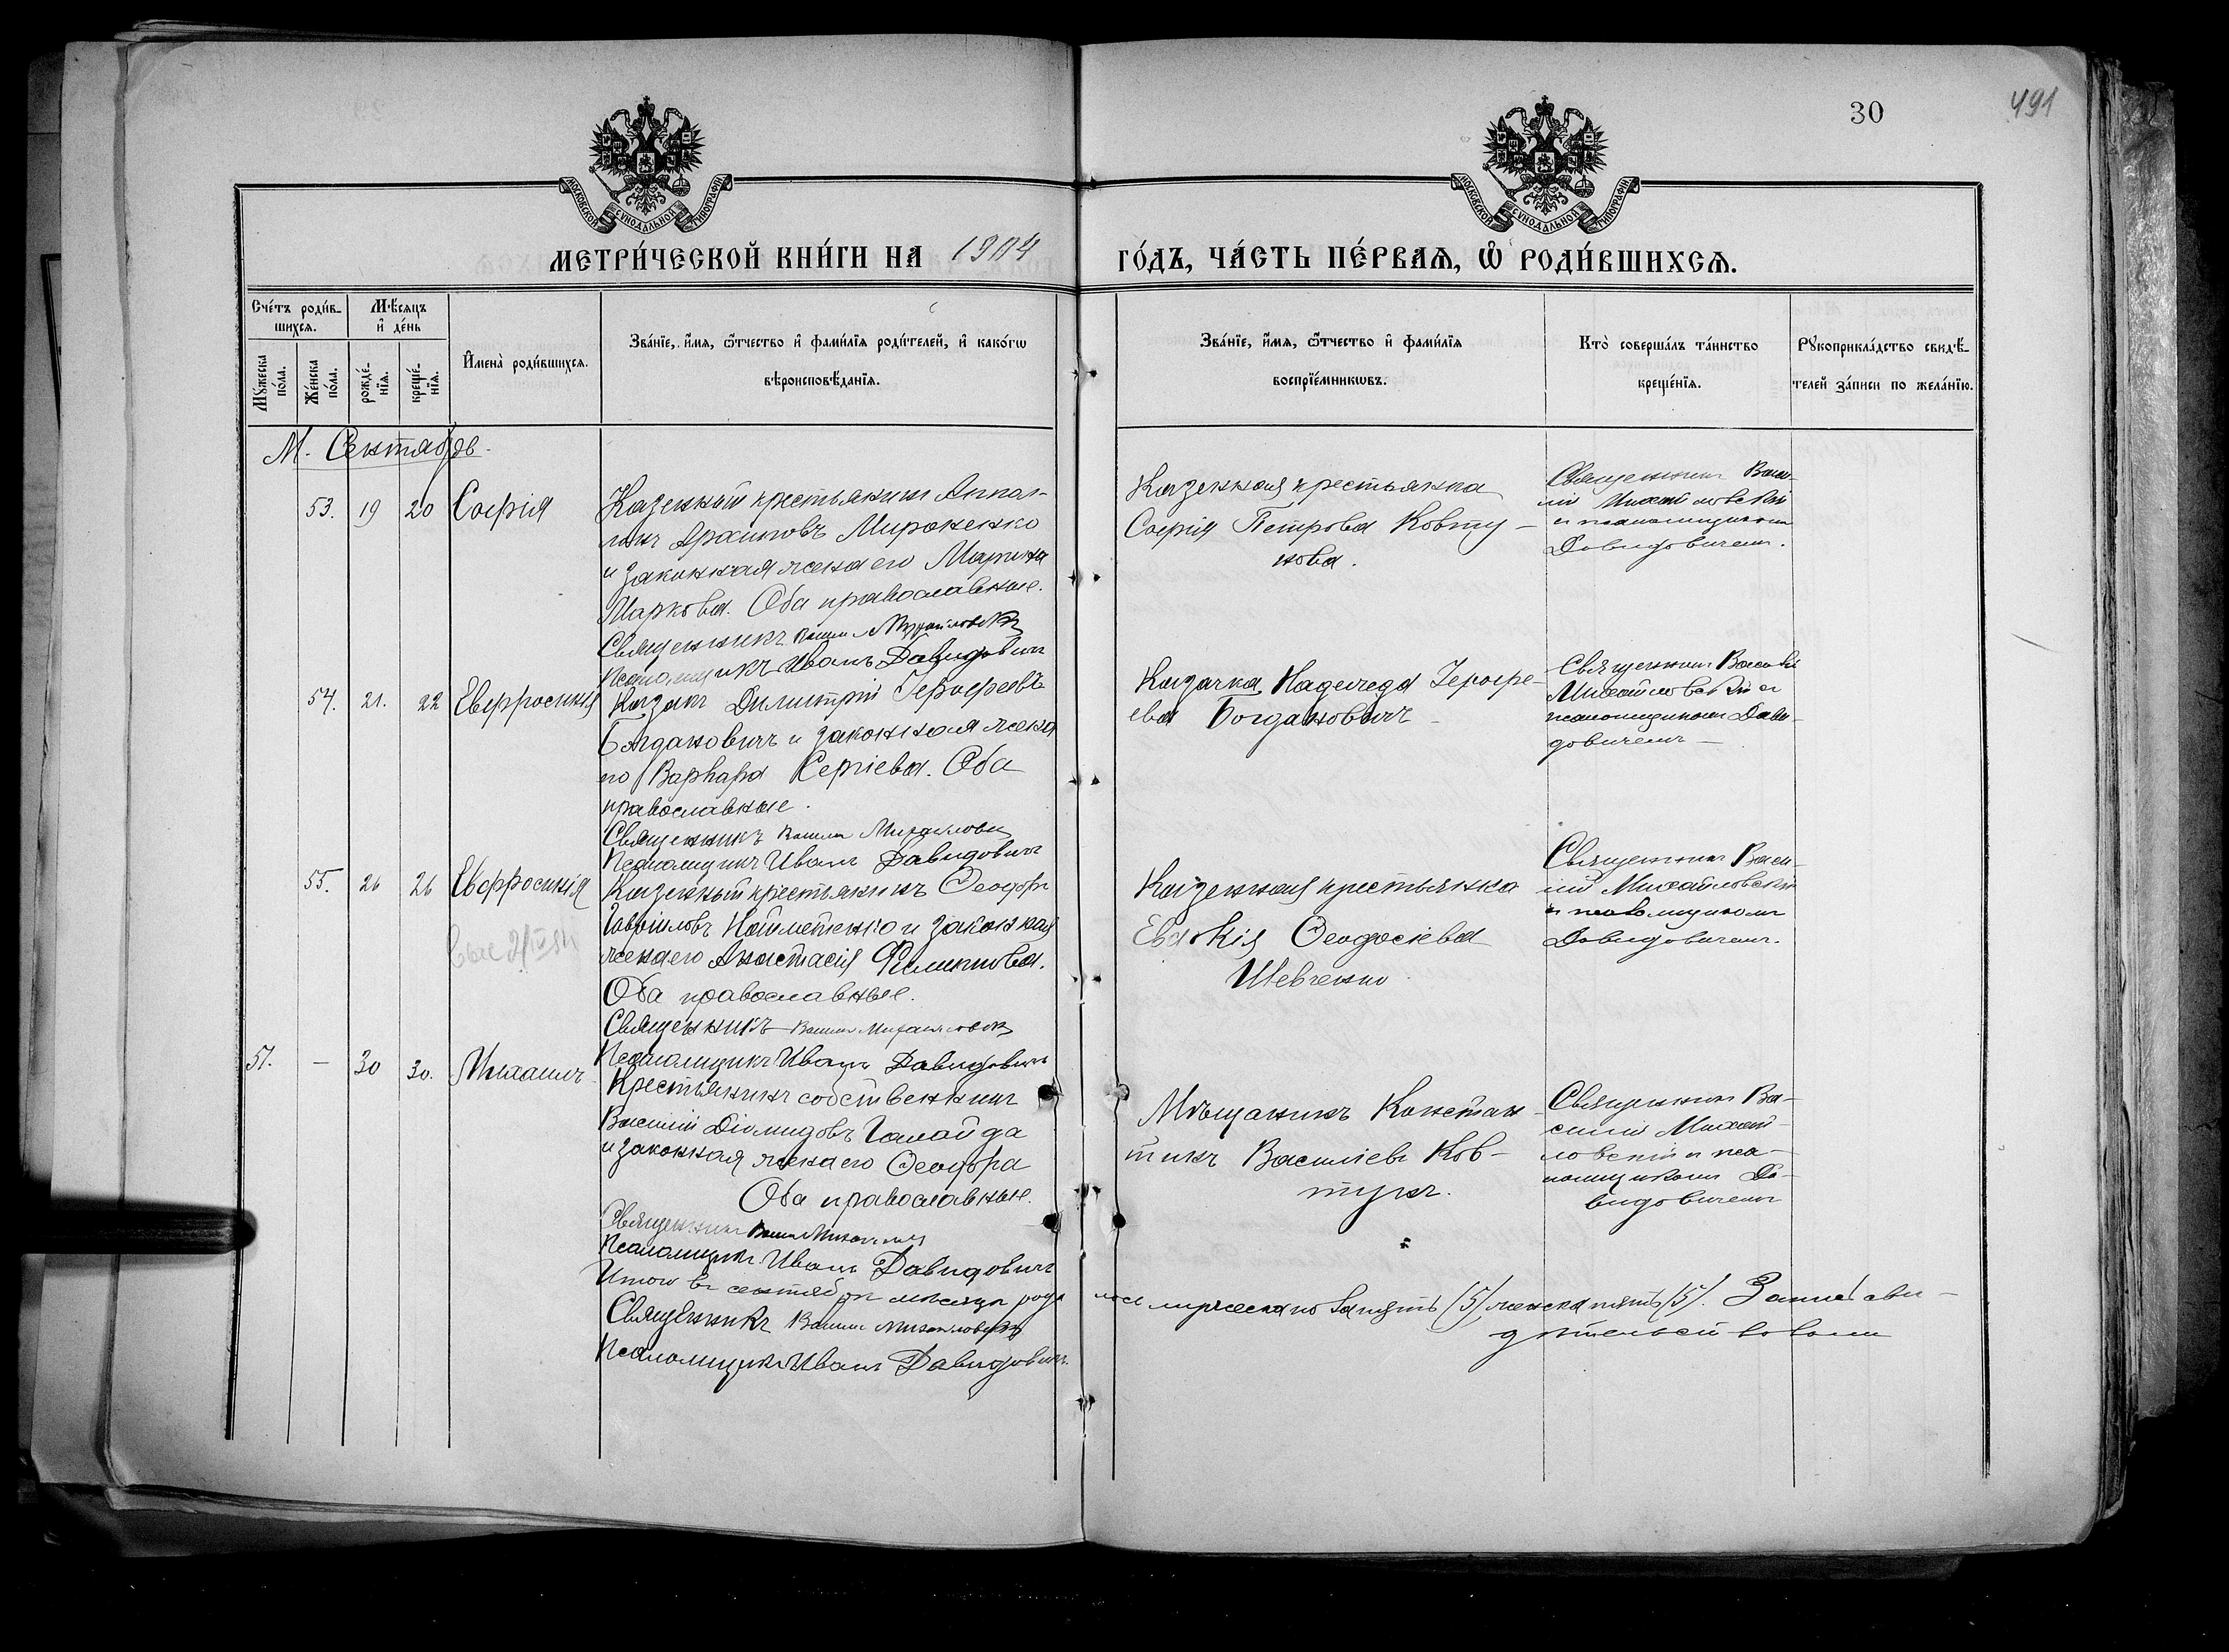 30
491
МОСКОВСКОЙ СѴНОДАЛЬНОЙ ТИПОГРАФІИ.
МОСКОВСКОЙ СѴНОДАЛЬНОЙ ТИПОГРАФІИ.
МЕТРИ́ЧЕСКОЙ КНИ́ГИ НА 1904
ГО́ДЪ, ЧА́СТЬ ПЕ́РВАѦ, Ѡ҆ РОДИ́ВШИХСѦ.
Сче́тъ роди́в-
шихсѧ.
Мѣ́сѧцъ
и҆ де́нь
Мꙋ́жеска
по́ла.
Же́нска
по́ла.
рожде́-
нїѧ.
креще́-
нїѧ.
И҆мена̀ роди́вшихсѧ.
Зва́нїе, и҆́мѧ, ѻ҆́тчество и҆ фами́лїѧ роди́телей, и҆ како́гѡ
вѣроисповѣ́данїѧ.
Зва́нїе, и҆́мѧ, ѻ҆́тчество и҆ фами́лїѧ
воспрїе́мникѡвъ.
Кто̀ соверша́лъ та́инство
креще́нїѧ.
Рꙋкоприкла́дство свидѣ́-
телей за́писи по жела́нїю.
М. Сентябрь.
53. 19 20 Софія
Казенный крестьянинъ Аппол-
линъ Архиповъ Мироненко
и законная жена его Марина
Маркова. Оба православные.
Священникъ Василій Михайловскій
Псаломщикъ Иванъ Давидовичъ
Казенная крестьянка
Софія Петрова Ковту-
нова.
Священникъ Васи-
лій Михайловскій
и псаломщикомъ
Давидовичемъ.
54. 21. 22 Евфросинія
Казакъ Димитрій Іерофеевъ
Богдановичъ и законная жена
его Варвара Сергіева. Оба
православные.
Священникъ Василій Михайловскій
Псаломщикъ Иванъ Давидовичъ
Казачка Надежда Іерофе-
ева Богдановичъ
Священникъ Василій
Михайловскій и
псаломщикомъ Дави-
довичемъ
55. 26 26 Евфросинія
Казенный крестьянинъ Ѳеодоръ
Гавріиловъ Найметенко и законная
жена его Анастасія Филиппова.
Оба православные.
Священникъ Василій Михайловскій
Псаломщикъ Иванъ Давидовичъ
Казенная крестьянка
Евдокія Ѳеодосіева
Шевченко
Священникъ Васи-
лій Михайловскій
и псаломщикомъ
Давидовичемъ.
57. — 30 30. Михаилъ
Крестьянинъ собственникъ
Василій Діомидовъ Галайда
и законная жена его Ѳеодора
Оба православные.
Священникъ Василій Михайловскій
Псаломщикъ Иванъ Давидовичъ
Мѣщанинъ Констан-
тинъ Василіевъ Ков-
тунъ.
Священникъ Ва-
силій Михай-
ловскій и пса-
ломщикомъ Да-
видовичемъ
Итого въ сентябрѣ мѣсяцѣ роди лось мужеска пола пять (5) женска пять (5). Запись сви-
дѣтельствовали
Священникъ Василій Михайловскій
Псаломщикъ Иванъ Давидовичъ.